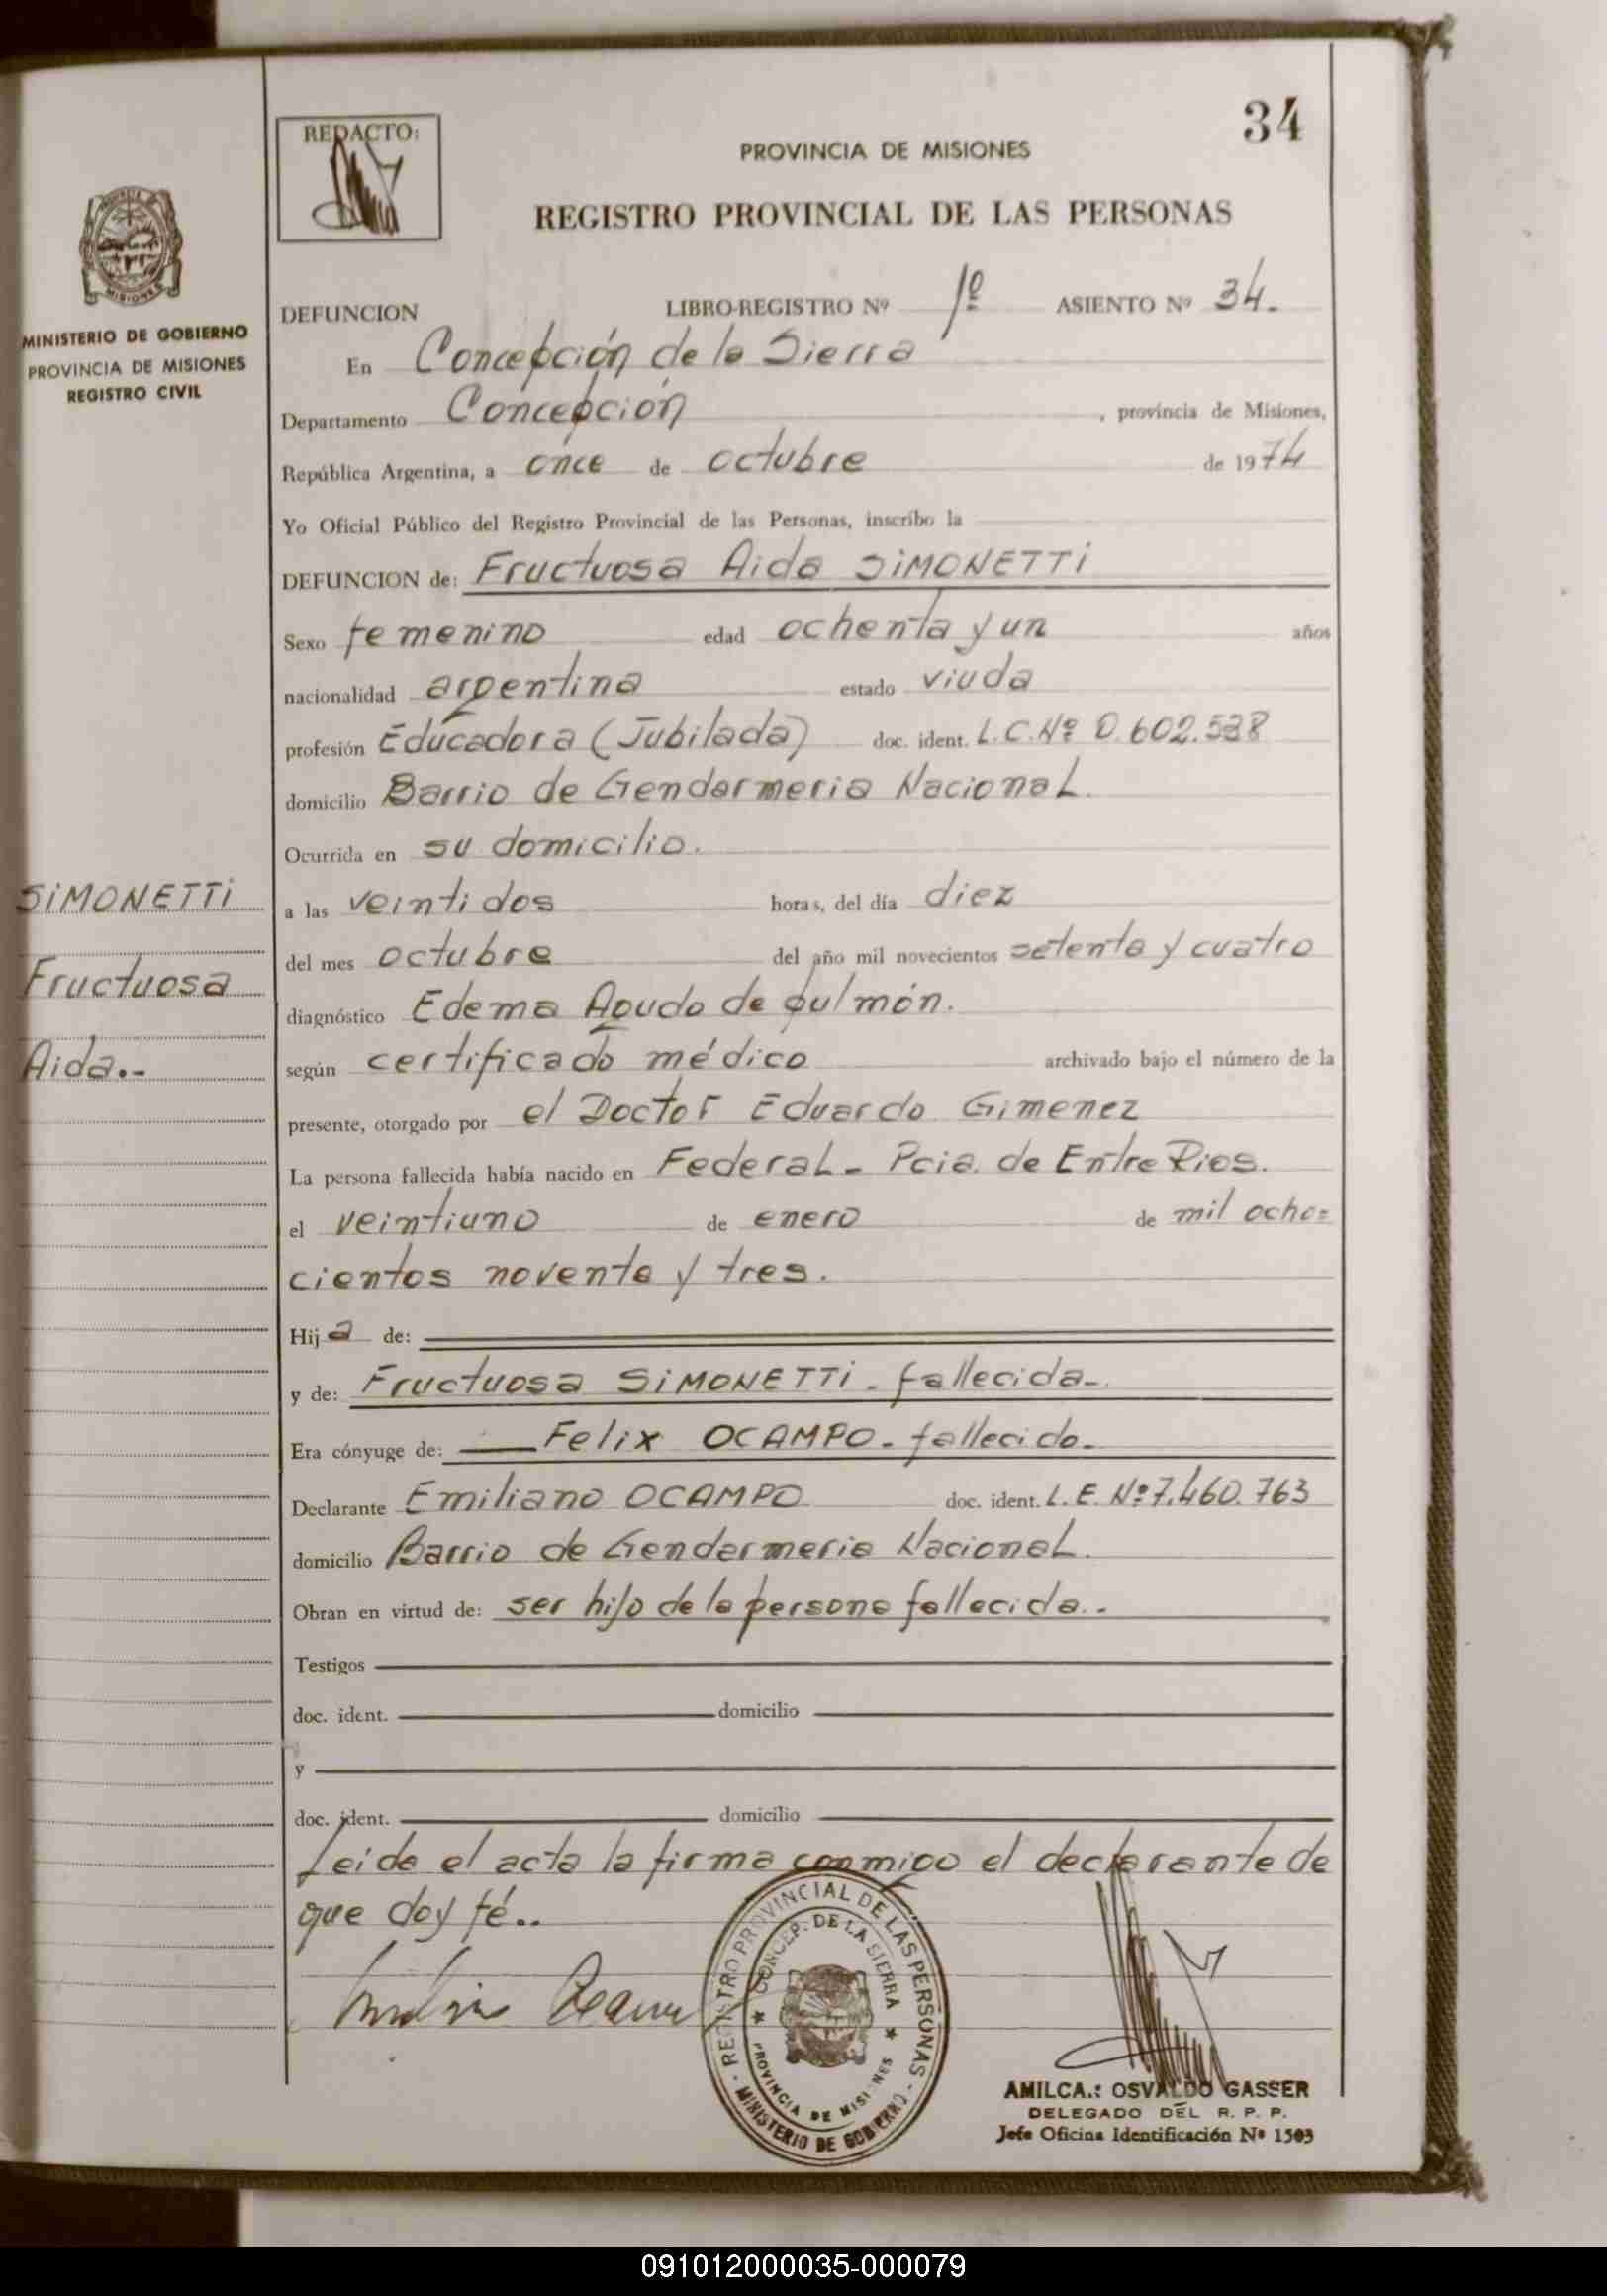 34
REDACTO:
PROVINCIA DE MISIONES
REGISTRO PROVINCIAL DE LAS PERSONAS
MISIONES
MINISTERIO DE GOBIERNO
PROVINCIA DE MISIONES
REGISTRO CIVIL
DEFUNCION LIBRO-REGISTRO Nº 1º ASIENTO Nº 34.
En Concepción de la Sierra
Departamento Concepción, provincia de Misiones,
República Argentina, a once de octubre de 1974
Yo Oficial Público del Registro Provincial de las Personas, inscribo la
DEFUNCION de: Fructuosa Aida SIMONETTI
Sexo femenino edad ochenta y un años
nacionalidad argentina estado viuda
profesión Educadora (Jubilada) doc. ident. L.C.Nº 0.602.538
domicilio Barrio de Gendarmeria Nacional.
Ocurrida en su domicilio.
SIMONETTI
Fructuosa
Aida.-
a las veintidos horas, del día diez
del mes octubre del año mil novecientos setenta y cuatro
diagnóstico Edema Agudo de pulmón.
según certificado médico archivado bajo el número de la
presente, otorgado por el Doctor Eduardo Gimenez
La persona fallecida había nacido en Federal - Pcia. de Entre Rios.
el veintiuno de enero de mil ocho=
cientos noventa y tres.
Hija de:
y de: Fructuosa SIMONETTI - fallecida-.
Era cónyuge de: Felix OCAMPO - fallecido-
Declarante Emiliano OCAMPO doc. ident. L.E. Nº 7.460.763
domicilio Barrio de Gendarmeria Nacional.
Obran en virtud de: ser hijo de la persona fallecida..
Testigos
doc. ident. domicilio
y
doc. ident. domicilio
Leida el acta la firma conmigo el declarante de
que doy fé..
REGISTRO PROVINCIAL DE LAS PERSONAS - MINISTERIO DE GOBIERNO -
CONCEP. DE LA SIERRA ★ PROVINCIA DE MISIONES ★
AMILCA.: OSVALDO GASSER
DELEGADO DEL R. P. P.
Jefe Oficina Identificación Nº 1503
091012000035-000079